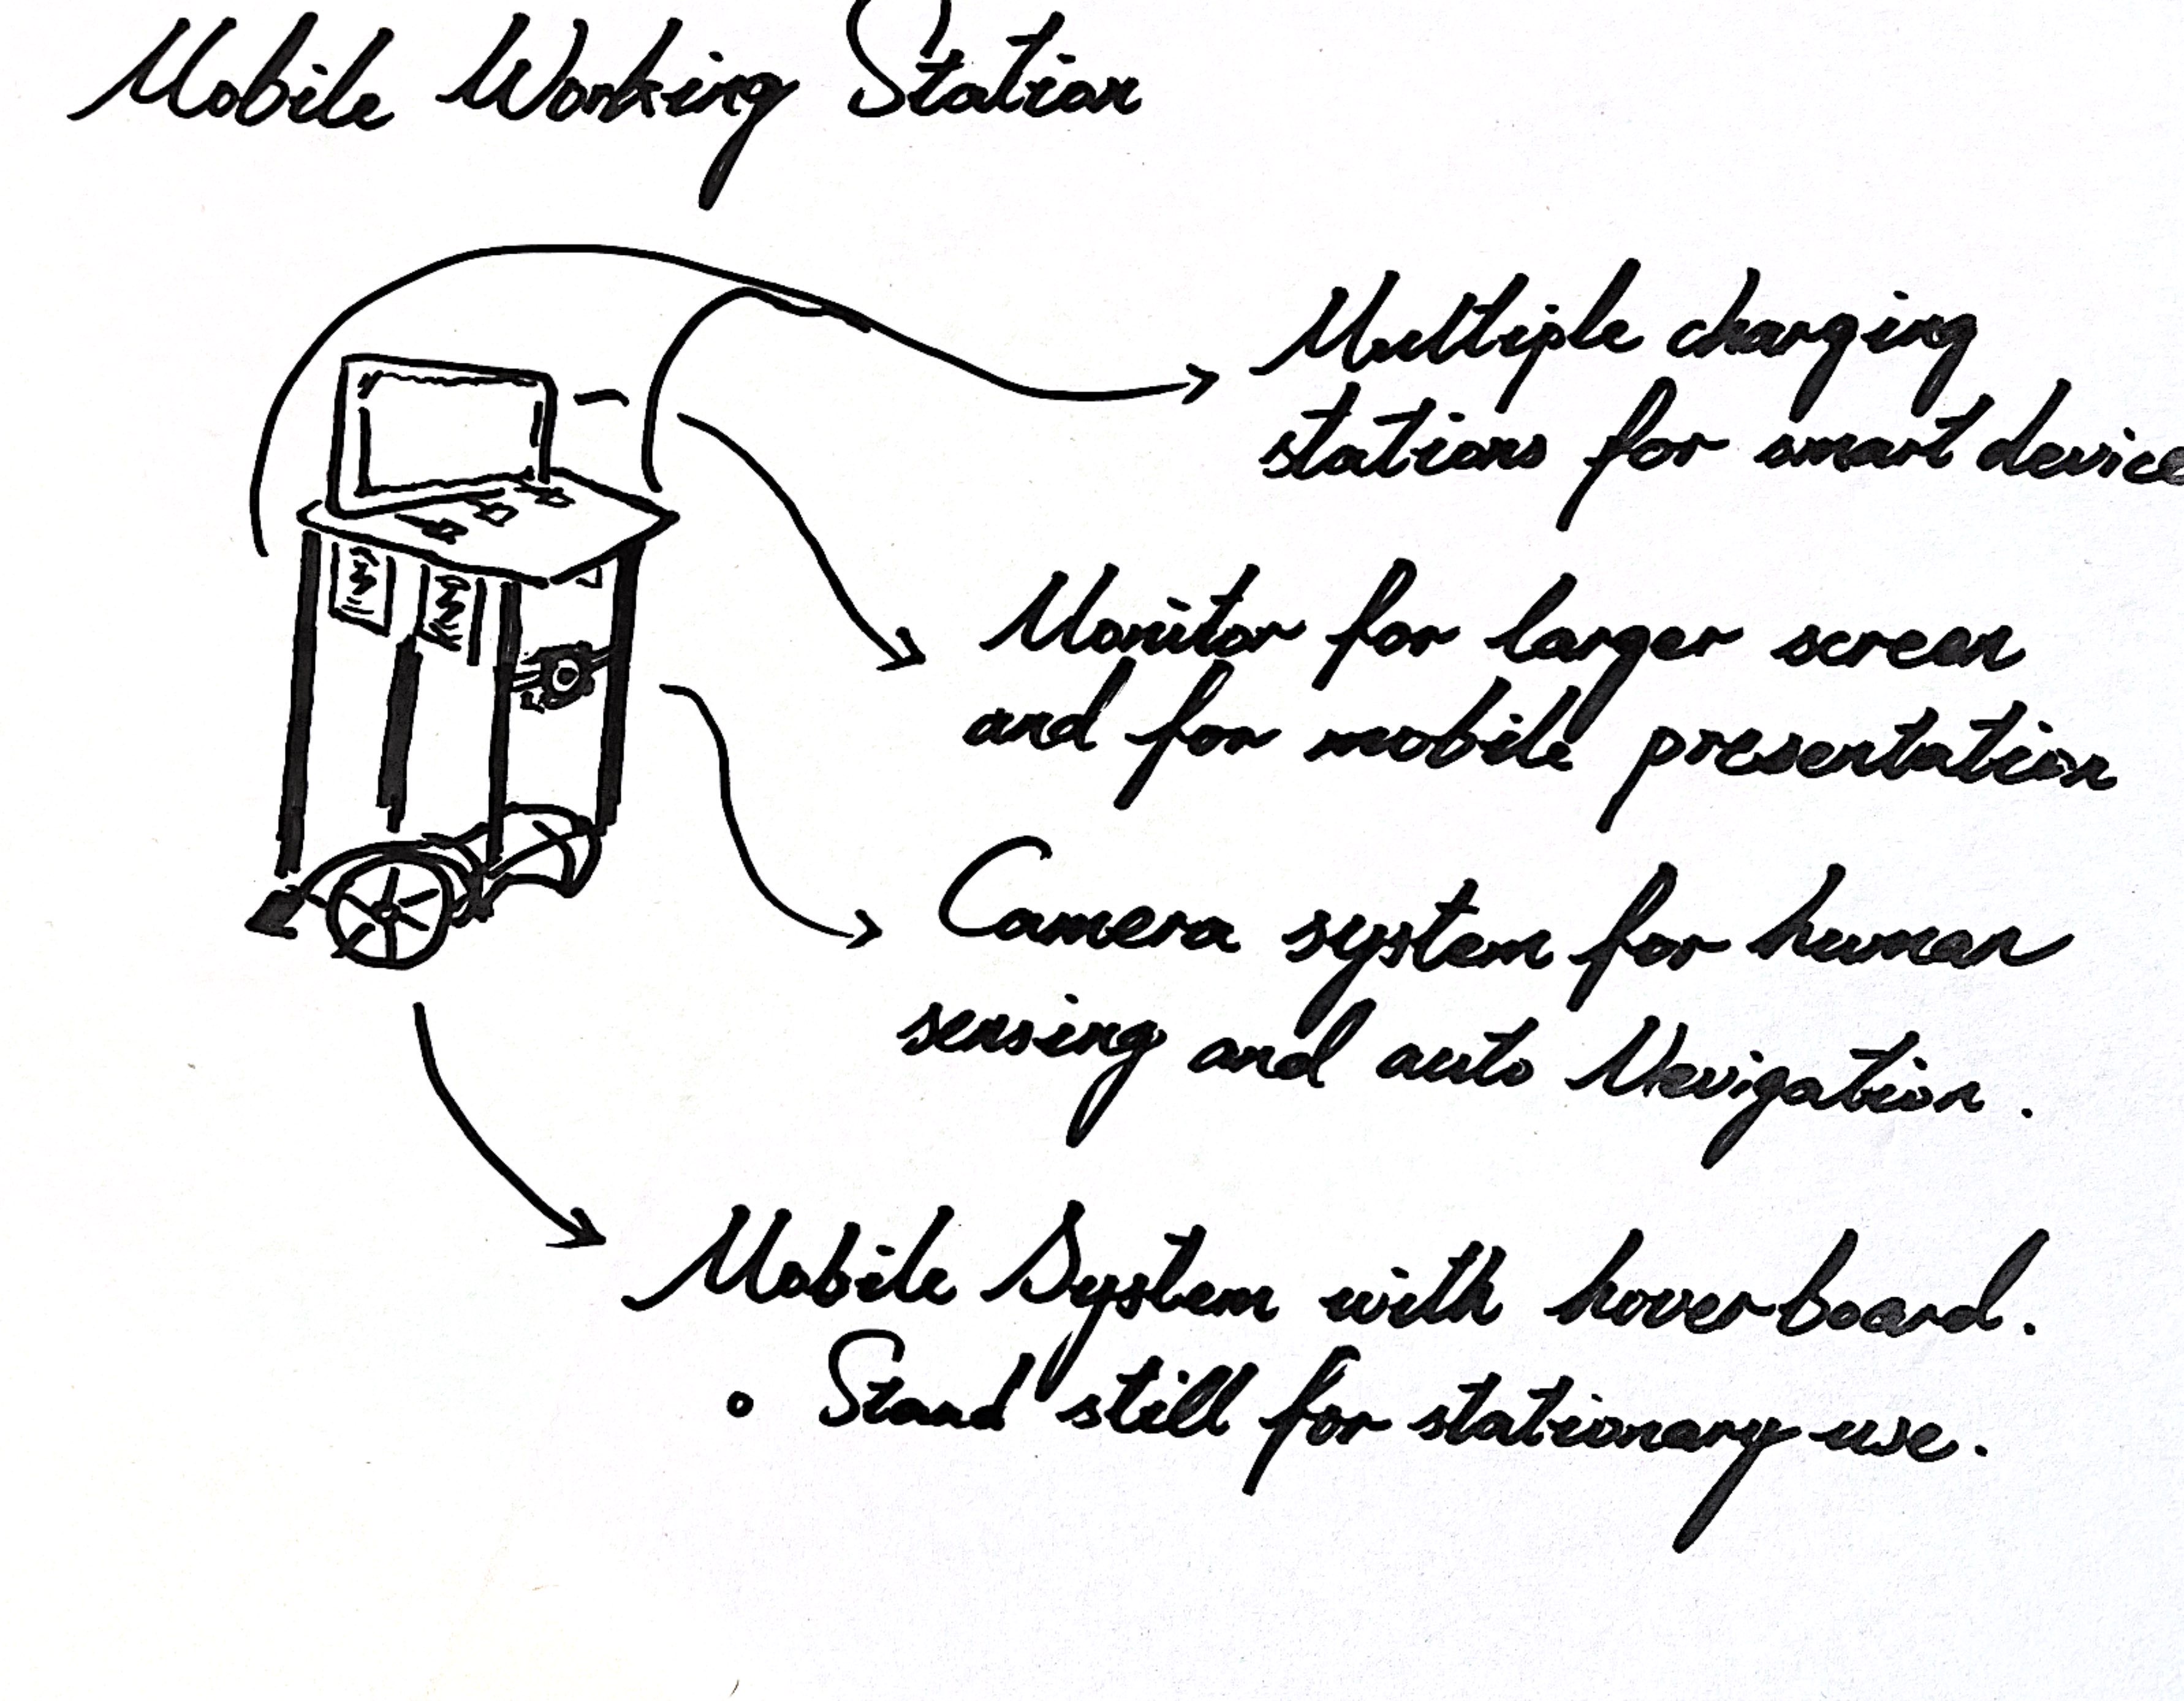 Mobile Working Station
Multiple charging
stations for smart device
Monitor for larger screen
and for mobile presentation
Camera system for human
sensing and auto Navigation.
Mobile System with hoverboard.
Stand still for stationary use.